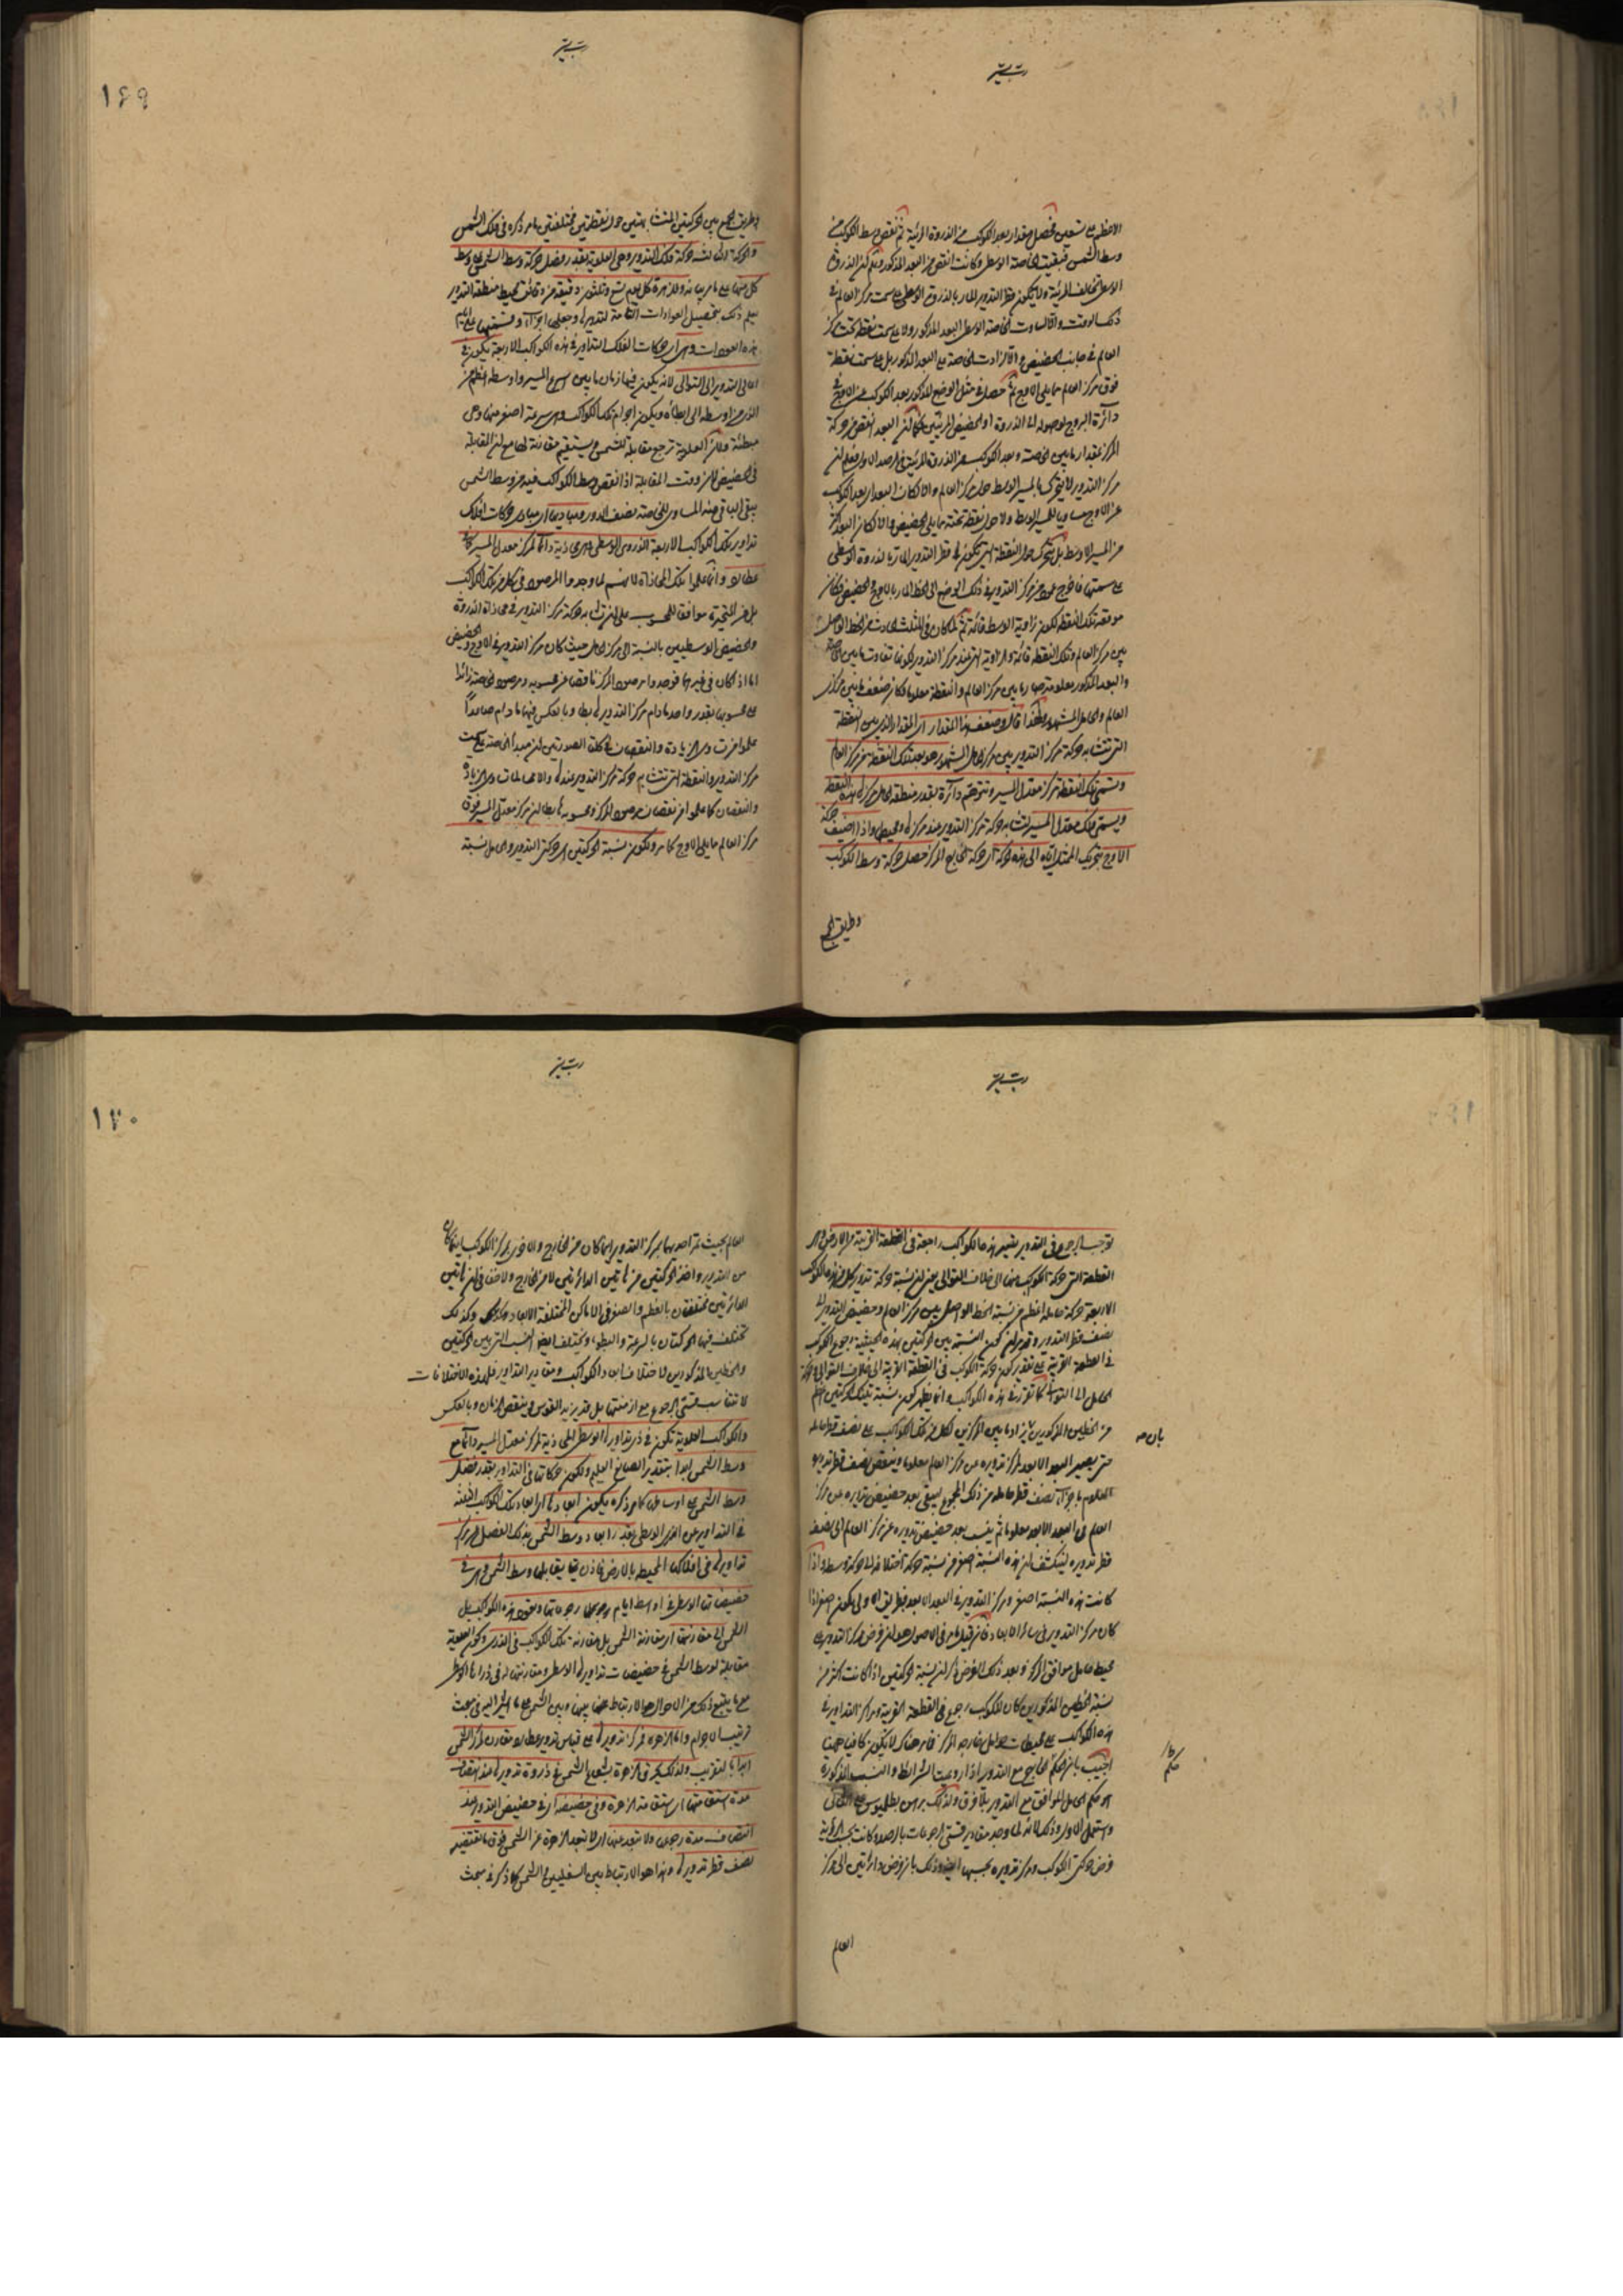 الاعظم على تسعين فحصل مقدار بعد الكوكب من الذروة المرئية ثم نقص وسط الكوكب من
وسط الشمس فبقيت الخاصة الوسطى وكانت انقص من البعد المذكور وعلم ان الذروة
الوسطى تخالف المرئية ولا يكون قطر التدوير المار بالذروة الوسطى على سمت مركز العالم في
ذلك الوقت والا لساوت الخاصة الوسطى البعد المذكور ولا على سمت نقطة تحت مركز
العالم في جانب الحضيض والا لزادت الخاصة على البعد المذكور بل على سمت نقطة
فوق مركز العالم مما يلي الاوج ثم حصل في مثل الوضع المذكور بعد الكوكب عن الاوج في
دائرة البروج لوصوله الى الذروة او الحضيض المرئيين فكان البعد انقص من حركة
المركز بمقدار ما بين الخاصة وبعد الكوكب عن الذروة المرئية في الرصد الاول فعلم ان
مركز التدوير لا يتحرك بالمسير الوسط حول مركز العالم والا لكان البعد اي بعد الكوكب
عن الاوج مساويا للمسير الوسط ولا حول نقطة تحته مما يلي الحضيض والا لكان البعد اكثر
من المسير الاوسط بل يتحرك حول النقطة التي يكون قطر التدوير المار بالذروة الوسطى
على سمتها فاخرج عمود من مركز التدوير في ذلك الوضع الى الخط المار بالاوج والحضيض فكان
موقعه تلك النقطة لكون زاوية الوسط قائمة ثم لما كان في المثلث الحادث من الخط الواصل
بين مركز العالم وتلك النقطة قائمة والزاوية التي عند مركز التدوير لكونها تفاوت ما بين الخاصة
والبعد المذكور معلومة صار ما بين مركز العالم والنقطة معلوما فكان ضعف ما بين مركز
العالم والحامل المشهور ولهذا قال وضعف هذا المقدار اي المقدار الذي بين النقطة
التي تتشابه حركة مركز التدوير وبين مركز الحامل المشهور هو بعد تلك النقطة عن مركز العالم
وتسمى تلك النقطة مركز معدل المسير وتتوهم دائرة بقدر منطقة الحامل مركزها هذه النقطة
ويسمى فلك معدل المسير لتشابه حركة مركز التدوير عند مركزها ومحيطها واذا اضيف حركة
الاوج بتحريك الممثل اياه الى هذه الحركة اي حركة الخارج المركز حصل حركة وسط الكوكب
وطريق الجمع
١٦٩
وطريق الجمع بين الحركتين المتشابهتين حول نقطتين مختلفتين ما مر ذكره في فلك الشمس
والحركة الثالثة حركة فلك التدوير وهي للعلوية بقدر فضل حركة وسط الشمس على وسط
كل منها على ما مر بيانه وللزهرة كل يوم سبع وثلثون دقيقة من دقائق محيط منطقة التدوير
يعلم ذلك بتحصيل العودات التامة لتدويرها وجعلها اجزاء وقسمتها على ايام
هذه العودات وهي اي حركات افلاك التداوير في هذه الكواكب الاربعة يكون في
اعالي التدوير الى التوالي لانه يكون فيها زمان ما بين اسرع المسير واوسطه اعظم من
الذي من اوسطه الى ابطائه ويكون اجرام تلك الكواكب وهي سريعة اصغر منها وهي
مبطئة ولان العلوية ترجع مقابلة للشمس وتستقيم مقارنة لها مع ان المقابلة
في الحضيض لان وقت المقابلة اذا نقص وسط الكوكب فيه من وسط الشمس
يبقى الباقي منه المساوي للخاصة نصف الدور ومباديها اي مبادي حركات افلاك
تداوير تلك الكواكب الاربعة الذروى الوسطى وهي محاذية دائما لمركز معدل المسير كما في
عطارد وانما علموا تلك المحاذاة لانهم لما وجدوا المرصود في كل من تلك الكواكب
بل من المتحيرة موافقا للمحسوب على ان تشابه حركة مركز التدوير في محاذاة الذروة
والحضيض الوسطيين بالنسبة الى مركز الحامل حيث كان مركز التدوير في الاوج والحضيض
اما اذا كان في غيرهما فوجدوا مرصود المركز ناقصا عن محسوبه ومرصود الخاصة زائدا
على محسوبها بقدر واحد ما دام مركز التدوير هابطا وبالعكس فيهما ما دام صاعدا
علموا من تساوي الزيادة والنقصان في كلتا الصورتين ان مبدأ الخاصة على سمت
مركز التدوير والنقطة التي تتشابه حركة مركز التدوير عندها والا لما تساوى الزيادة
والنقصان كما علموا من نقصان مرصود المركز ومحسوبه هابطا ان مركز معدل المسير فوق
مركز العالم مما يلي الاوج كما مر ولكون نسبة الحركتين اي حركة التدوير والحامل نسبة
توجب الرجوع في التدوير يصير هذه الكواكب راجعة في القطعة القريبة من الارض وهي
القطعة التي حركة الكوكب منها الى خلاف التوالي يعني ان نسبة حركة تدوير كل من هذه الكواكب
الاربعة حركة حامله اعظم من نسبة الخط الواصل بين مركز العالم وحضيض التدوير الى
نصف قطر التدوير وقد مر ان كون النسبة بين الحركتين بهذه الحيثية يوجب رجوع الكوكب
في القطعة القريبة على تقدير كون حركة الكوكب في القطعة القريبة الى خلاف التوالي وحركة
الحامل الى التوالي كما تقرر في هذه الكواكب وانما يظهر كون نسبة تينك الحركتين اعظم
من الخطين المذكورين بان يزاد ما بين المركزين لكل من تلك الكواكب على نصف قطر حامله
حتى يصير البعد الابعد لمركز تدويره عن مركز العالم معلوما وينقص نصف قطر تدويره
المعلوم باجزاء نصف قطر حامله من ذلك المجموع ليبقى بعد حضيض تدويره عن مركز
العالم في البعد الابعد معلوما ثم ينسب بعد حضيض تدويره عن مركز العالم الى نصف
قطر تدويره لينكشف ان هذه النسبة اصغر من نسبة حركة اختلافه الى حركة وسطه واذا
كانت هذه النسبة اصغر ومركز التدوير في البعد الابعد فبطريق الاولى يكون اصغر اذا
كان مركز التدوير في سائر الابعاد فان قيل ما مر في الاصول هو ان فرض مركز التدوير على
محيط حامل موافق المركز وبعد ذلك الفرض ذكر ان نسبة الحركتين اذا كانت اكثر من
نسبة الخطين المذكورين كان للكوكب رجوع في القطعة القريبة ومراكز التداوير في
هذه الكواكب على محيطات حوامل خارجة المراكز فما مر هناك لا يكون كافيا ههنا
اجيب بان حكم الخارج مع التدوير اذا روعيت الشرائط والنسب المذكورة
هو حكم الحامل الموافق مع التدوير بلا فرق ولذلك برهن بطليموس على الثاني
واستعمل الاول وذلك لانه لما وجد مقادير قسي الرجوعات بالرصد وكانت بحسب الرؤية
فرض حركتي الكوكب ومركز تدويره بحسبها ايضا وذلك بان فرض دائرتين الى مركز
بان صه
حكم
العالم
١٧٠
العالم بحيث يمر احديهما بمركز التدوير اينما كان من الخارج والاخرى بمركز الكوكب اينما كان
من التدوير واخذ الحركتين من هاتين الدائرتين لا من الخارج ولا خفاء في ان هاتين
الدائرتين مختلفتان بالعظم والصغر في الاماكن المختلفة الابعاد وكذلك
تختلف فيها الحركتان بالسرعة والبطوء ويختلف ايضا النسب التي بين الحركتين
والخطين المذكورين لاختلاف ابعاد الكواكب ومقادير التداوير فلهذه الاختلافات
لا تتناسب قسي الرجوع مع ازمنتها بل قد يزيد القوس وينقص الزمان وبالعكس
والكواكب العلوية تكون في ذرى تداويرها الوسطى المحاذية لمركز معدل المسير دائما مع
وسط الشمس ابدا بتقدير الصانع العليم ولكون حركاتها في التداوير بقدر فضل
وسط الشمس على اوساطها كما مر ذكره يكون ابعادها اي ابعاد تلك الكواكب الثلثة
في التداوير عن الذرى الوسطى بقدر ابعاد وسط الشمس بذلك الفضل عن مراكز
تداويرها في افلاكها المحيطة بالارض فاذن يقابلها وسط الشمس وهي في
حضيضاتها الوسطى في اواسط ايام رجوعها ويعود هذه الكواكب بل
الشمس الى مقارنتها اي مقارنة الشمس بل مقارنة تلك الكواكب في الذرى وكون العلوية
مقابلة لوسط الشمس في حضيضات تداويرها الوسطى ومقارنتها له في ذراها الوسطى
مع ما يتبع ذلك من الاحوال هو الارتباط بينها وبين الشمس على ما اشير اليه في مبحث
ترتيب الاجرام واما الزهرة فمركز تدويرها على قياس تدوير عطارد مقارن لمركز الشمس
ابدا بالتقريب ولذلك يحترق الزهرة بشعاع الشمس في ذروة تدويرها عند انتصاف
مدة استقامتها اي استقامة الزهرة وفي حضيضه اي في حضيض التدوير عند
انتصاف مدة رجوعها ولا تبعد عنها اي لا تبعد الزهرة عن الشمس فوق ما يقتضيه
نصف قطر تدويرها وهذا هو الارتباط بين السفليين والشمس كما ذكر في مبحث